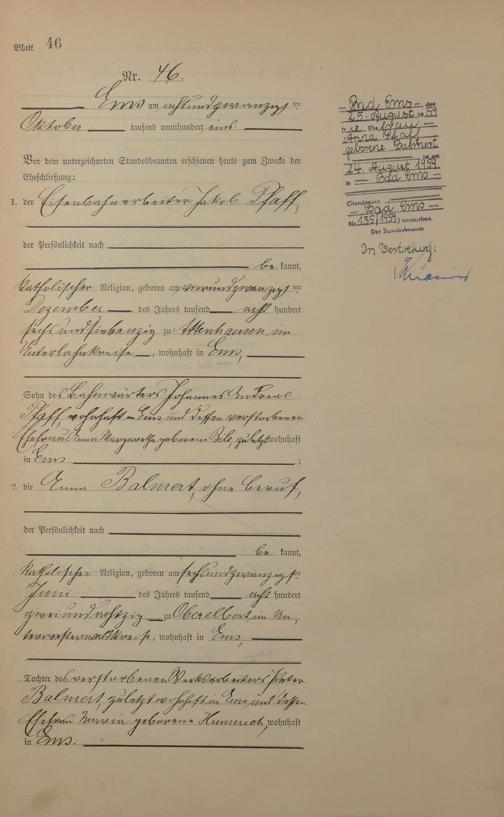 Blatt 46
Nr. 46.
Ems am achtundzwanzigsten
Oktober tausend neunhundert eins
Vor dem unterzeichneten Standesbeamten erschienen heute zum Zwecke der
Eheschließung:
1. der Eisenbahnarbeiter Jakob Pfaff,
der Persönlichkeit nach
be kannt,
katholischer Religion, geboren am vierundzwanzigsten
Dezember des Jahres tausend acht hundert
sechsundsiebenzig zu Attenhausen im
Unterlahnkreise, wohnhaft in Ems,
Sohn des Bahnwärters Johannes Andreas
Pfaff, wohnhaft in Ems und dessen verstorbenen
Ehefrau Anna Margaretha geborene zuletzt wohnhaft
in Ems ;
2. die Anna Balmert, ohne Beruf,
der Persönlichkeit nach
be kannt,
katholischer Religion, geboren am sechsundzwanzigsten
Juni des Jahres tausend acht hundert
zweiundachtzig zu Oberelbert, im Un-
terwesterwaldkreise, wohnhaft in Ems,
Tochter des verstorbenen Werksarbeiters Peter
Balmert, zuletzt wohnhaft in Ems und dessen
Ehefrau Maria geborene Humerich, wohnhaft
in Ems.
Bad Ems den
25. August 1959
Die Ehefrau
Anna Pfaff
geborene Balmert
ist am
24. August 1959
in Bad Ems
Standesamt
Bad Ems
Nr. 135/1959) verstorben.
Der Standesbeamte
In Vertretung: